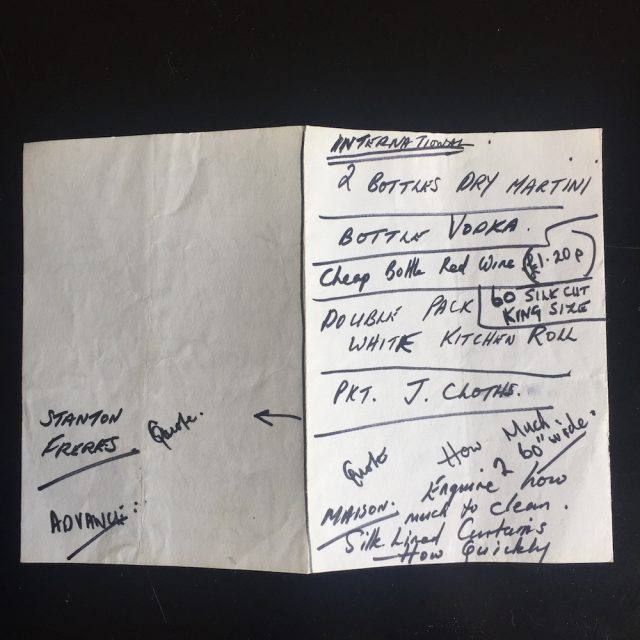 INTERNATIONAL.
2 BOTTLES DRY MARTINI
BOTTLE VODKA.
Cheap Bottle Red Wine £1.20p
60 SILK CUT
KING SIZE
DOUBLE PACK
WHITE KITCHEN ROLL
PKT. J. CLOTHS.
Quote How Much
2 60" wide.
MAISON: Enquire how
much to clean.
Silk Lined Curtains
How Quickly
STANTON
FRERES Quote. ←
ADVANCE: